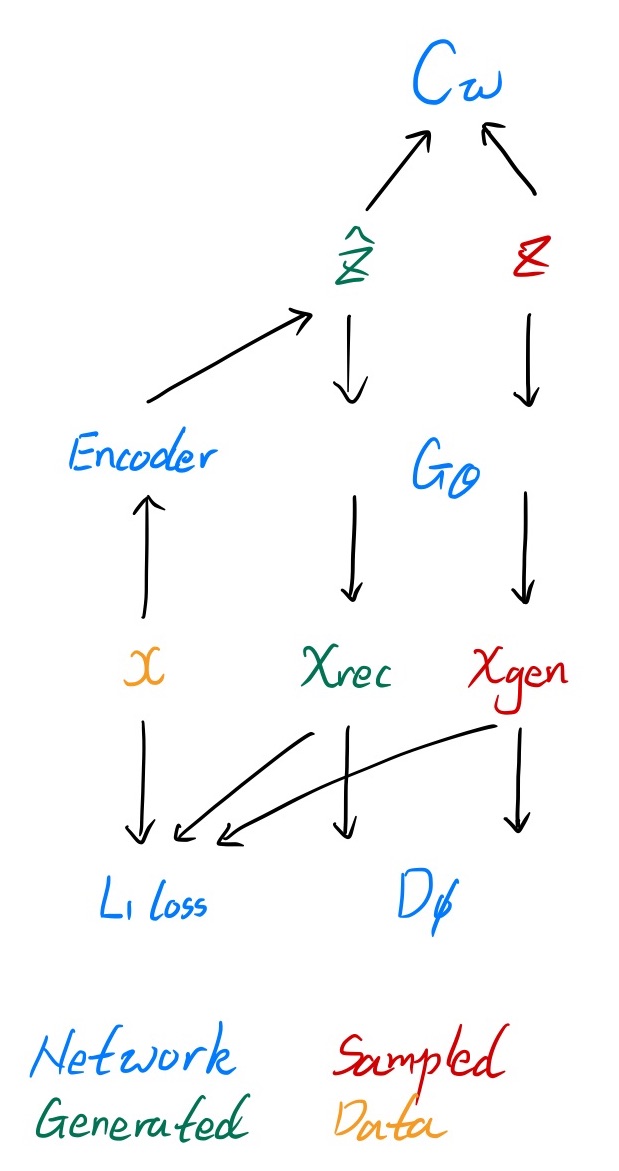 Cω
ẑ z
Encoder Gθ
x Xrec Xgen
L1 loss Dϕ
Network Sampled
Generated Data